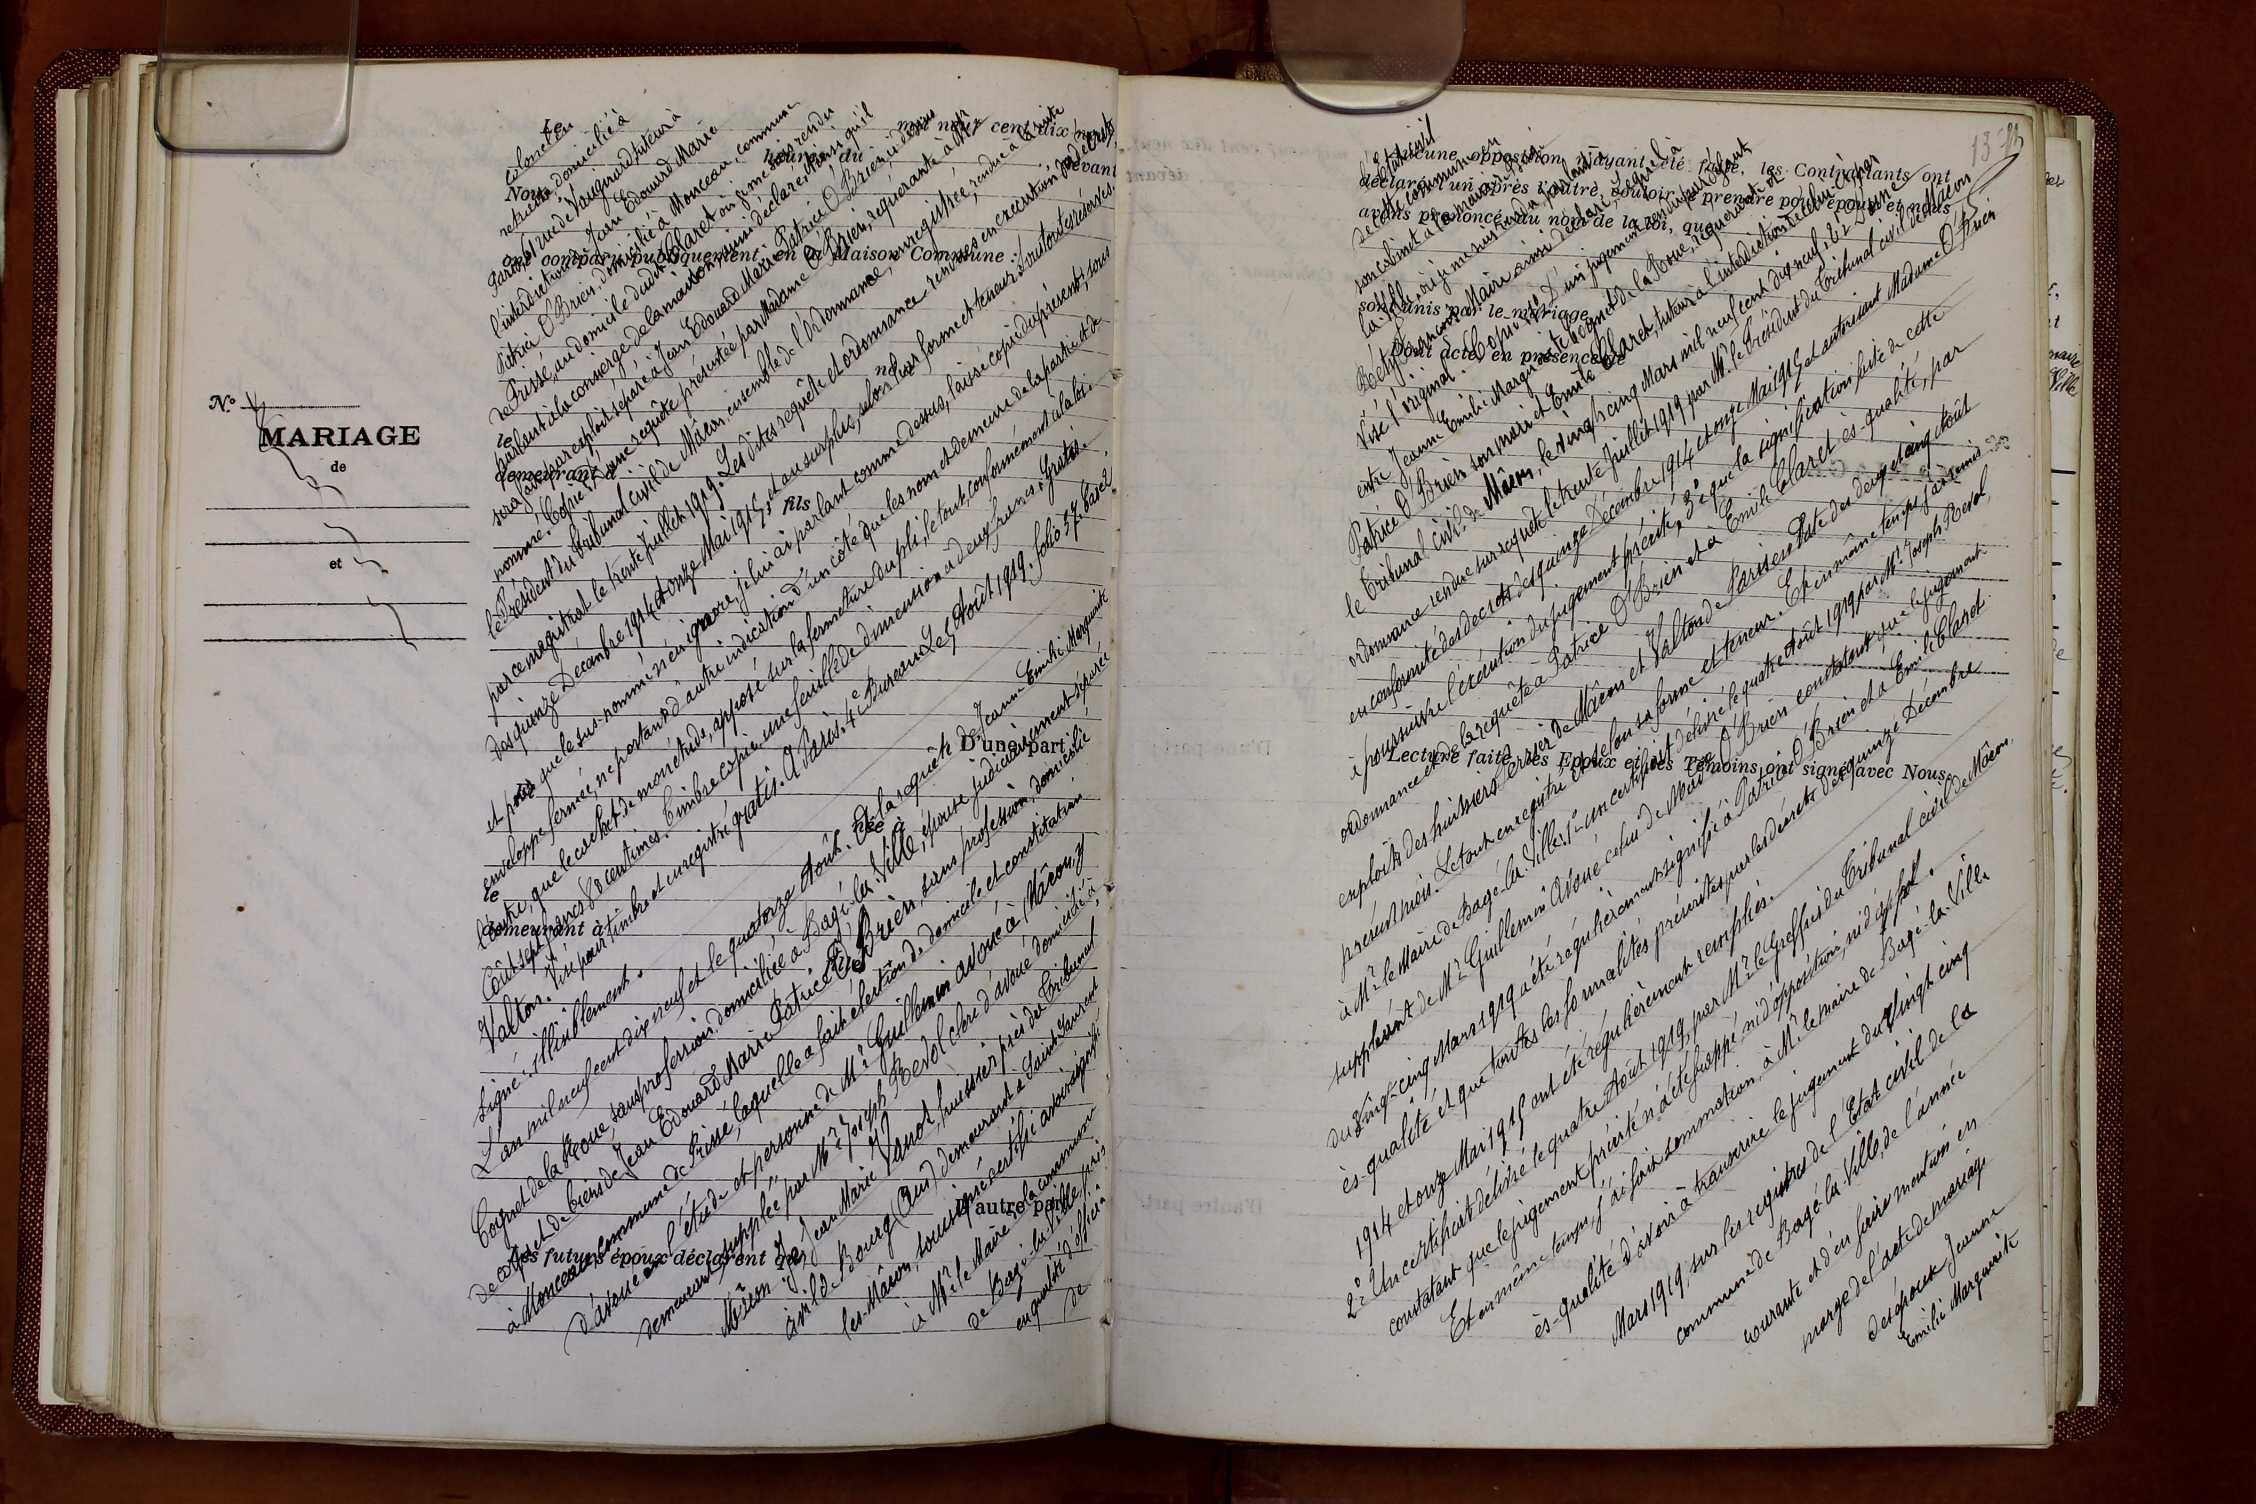 N.º
MARIAGE
de
et
Le
mil neuf cent dix n
heure du
Nous
devant
ont comparu publiquement, en la Maison Commune :
né
le
demeurant à
fils
D'une part ;
née à
le
demeurant à
D'autre part
Les futurs époux déclarent que
colonel en
retraite, domicilié à
Paris rue de Vaugirard tuteur à
l'interdiction de Jean Edouard Marie
Patrice O'Brien, domicilié à Monceau, commune
de Prissé, au domicile dudit Claret où je me suis rendu
parlant à la concierge de la maison, ainsi déclaré, ainsi qu'il
sera fait par exploit séparé à Jean Edouard Marie Patrice O'Brien ci-dessus
nommé. Copie: 1º d'une requête présentée par Madame O'Brien, requérante à Mr
le Président du Tribunal civil de Mâcon, ensemble de l'ordonnance, enregistrée, rendue à la suite
par ce magistrat le trente Juillet 1919. Les dites requête et ordonnance rendues en exécution des décrets
des quinze Décembre 1914 et onze Mai 1915, et au surplus, selon leur forme et teneur. Sous toutes réserves.
et pour que le sus-nommé n'en ignore, je lui ai parlant comme dessus, laissé copie du présent, sous
enveloppe fermée, ne portant d'autre indication d'un côté que les nom et demeure de la partie et de
l'autre, que le cachet de mon étude, apposé sur la fermeture du pli, le tout, conformément à la loi.
Coût sept francs 80 centimes. Timbre copie, une feuille de dimension à deux francs. Gratis.
Valton. Visé pour timbre et enregistré gratis. A Paris. 4e Bureau Le 5 Août 1919. folio 57. Case 1
Signé: illisiblement.
L'an mil neuf cent dix neuf et le quatorze Août. A la requête de Jeanne Emilie Marguerite
Cognet de la Roue, sans profession, domiciliée à Bagé-la-Ville, épouse judiciairement séparée
de corps et de biens de Jean Edouard Marie Patrice O'Brien, sans profession, domicilié
à Monceau, commune de Prissé, laquelle a fait élection de domicile et constitution
d'avoué en l'étude et personne de Mr Guillemin avoué à Mâcon, y
demeurant, suppléé par Mr Joseph Revol clerc d'avoué domicilié à
Mâcon Je, Jean Marie Vanot, huissier près du Tribunal
civil de Bourg (Ain) demeurant à Saint Laurent
les-Mâcon, soussigné certifié avoir signifié
à Mr le Maire, la commune
de Bagé-la-Ville, pris
en qualité d'officier
de
Aucune opposition n'ayant été faite, les Contractants ont
déclaré l'un après l'autre vouloir se prendre pour époux et nous
avons prononcé, au nom de la loi, que
sont unis par le mariage.
Dont acte, en présence de
Lecture faite, les Epoux et les Témoins ont signé avec Nous
l'État civil
de cette commune en
son cabinet à la mairie de Bagé-
la-Ville, où je me suis rendu, parlant à
l'original. Copie: 1º D'un jugement rendu par défaut
entre Jeanne Emilie Marguerite Cognet de la Roue, requérante et
Patrice O'Brien son mari et Emile Claret, tuteur à l'interdiction de celui-ci par
le Tribunal civil de Mâcon, le vingt cinq Mars mil neuf cent dix neuf; 2º D'une
ordonnance rendue sur requête le trente Juillet 1919 par Mr le Président du Tribunal civil de Mâcon
en conformité des décrets des quinze Décembre 1914 et onze Mai 1915 et autorisant Madame O'Brien
à poursuivre l'exécution du jugement précité, 3º que la signification faite de cette
ordonnance et de la requête à Patrice O'Brien et à Emile Claret ès-qualité, par
exploits des huissiers Perrier de Mâcon et Valton de Paris en date des deux et cinq Août
présent mois. Le tout enregistré, et selon sa forme et teneur. Et en même temps, j'ai remis
à Mr le Maire de Bagé-la-Ville: 1º un certificat délivré le quatre Août 1919 par Mr Joseph Revol,
suppléant de Mr Guillemin Avoué celui de Madame O'Brien constatant que le jugement
du vingt-cinq Mars 1919 a été régulièrement signifié à Patrice O'Brien et à Emile Claret
ès-qualité et que toutes les formalités prescrites par les décrets des quinze Décembre
1914 et onze Mai 1915 ont été régulièrement remplies.
2º Un certificat délivré le quatre Août 1919, par Mr le Greffier du Tribunal civil de Mâcon,
constatant que le jugement précité n'a été frappé, ni d'opposition, ni d'appel.
Et en même temps, j'ai fait sommation, à Mr le maire de Bagé-la-Ville
ès-qualité d'avoir à transcrire le jugement du vingt cinq
Mars 1919, sur les registres de l'État civil de la
commune de Bagé-la-Ville, de l'année
courante et d'en faire mention en
marge de l'acte de mariage
des époux Jeanne
Emilie Marguerite